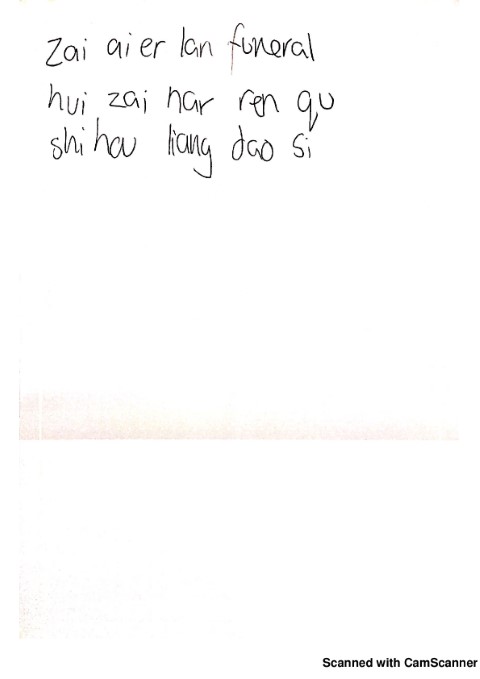 zai aier lan funeral
hui zai nar ren qu
shi hou liang dao si
Scanned with CamScanner